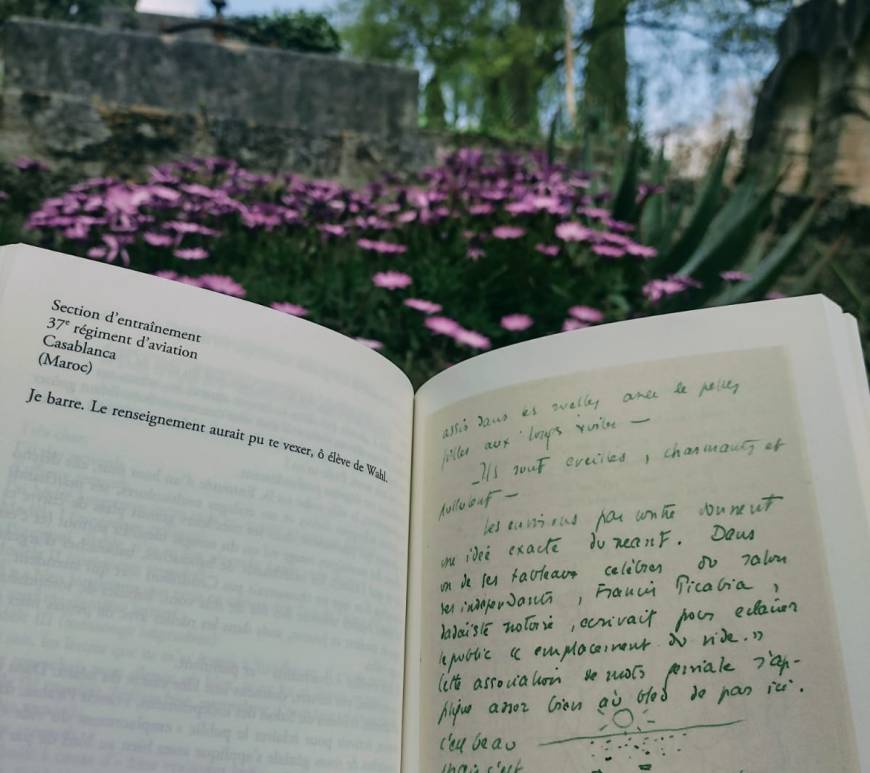 Section d'entraînement
37e régiment d'aviation
Casablanca
(Maroc)
Je barre. Le renseignement aurait pu te vexer, ô élève de Wahl.
assis dans les ruelles avec le petites
filles aux longs voiles —
_Ils sont éveillés, charmants et
pullulent —
Les environs par contre donnent
une idée exacte du néant. Dans
un de ses tableaux célèbres du salon
des indépendants, Francis Picabia,
dadaïste notoire, écrivait pour éclairer
le public « emplacement du vide. »
Cette association de mots géniale s'ap-
plique assez bien au bled de par ici.
c'est beau
mais c'est